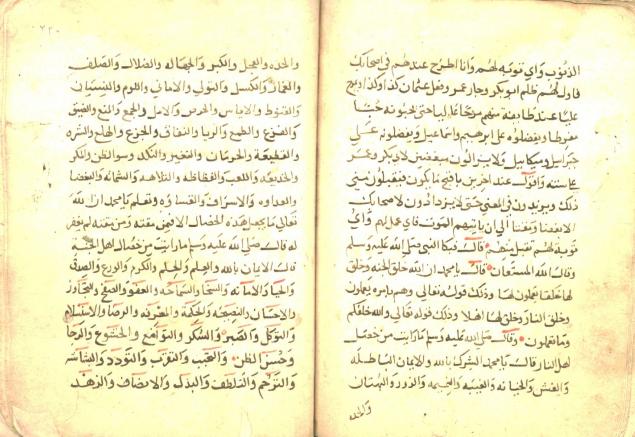 الذنوب واي توبة لهم وانا اطرح عندهم في اصحابك
فاقول لهم ظلم ابو بكر وجار عمر وفعل عثمان كذا وكذا
عليا عند طايفة منهم حتى يحبونه حبا
مفرطا ويفضلوه على ابرهيم واسماعيل ويفضلونه على
جبرائيل وميكاييل ولا يزالون مبغضين لابي بكر وعمر
واقول عند اخرين ما يكون فيقبلون مني
ذلك ويزيدون في المعنى حتى لا يزدادون لاصحابك
الا بغضا الى ان ياتيهم الموت فاي عمل لهم واي
توبة لهم تقبل منهم قال فبكا النبي صلى الله عليه وسلم
وقال الله المستعان قال يا محمد ان الله خلق الجنة وخلق
لها خلقا يعملون لها وذلك قوله تعالى وهم بامره يعملون
وخلق النار وخلق لها اهلا وذلك قوله تعالى والله خلقكم
وما تعملون وقال صلى الله عليه وسلم ما رايت من خصال
اهل النار قال يا محمد الشرك بالله والايمان الباطلة
والغش والخيانه والغيبه والنميمه والزور والبهتان
والحده
والحده والبخل والكبر والجهاله والضلال والصلف
والكسل والتواني والاماني واللوم والنسيان
والقنوط والاياس والحرص والامل والجمع والمنع والضيق
والفزع والطمع والريا والنفاق والجزع والهلع والشره
والقطيعة والحرمان والتغير والنكد وسو الظن والمكر
والخديعه واللعب والفظاظه والشماته والبغضا
والعداوه والاسراف والقساوه وتعلم يا محمد ان الله
تعالى ما يجعل هذه الخصال الا فيمن مقته ومن مقته لم يغفر
له قال صلى الله عليه وسلم ما رايت من خصال اهل الجنة
قال الايمان بالله والعلم والحلم والكرم والورع والصدق
والحيا والامانه والسخا والسماحه والعفو والصفح والتجاوز
والاحسان والنصيحه والحكمة والمعرفه والرضا والاستسلام
والتوكل والصبر والشكر والتواضع والخشوع والرجا
وحسن الظن والتودد والبشاشه
والترحم والتلطف والبذل والانصاف والزهد